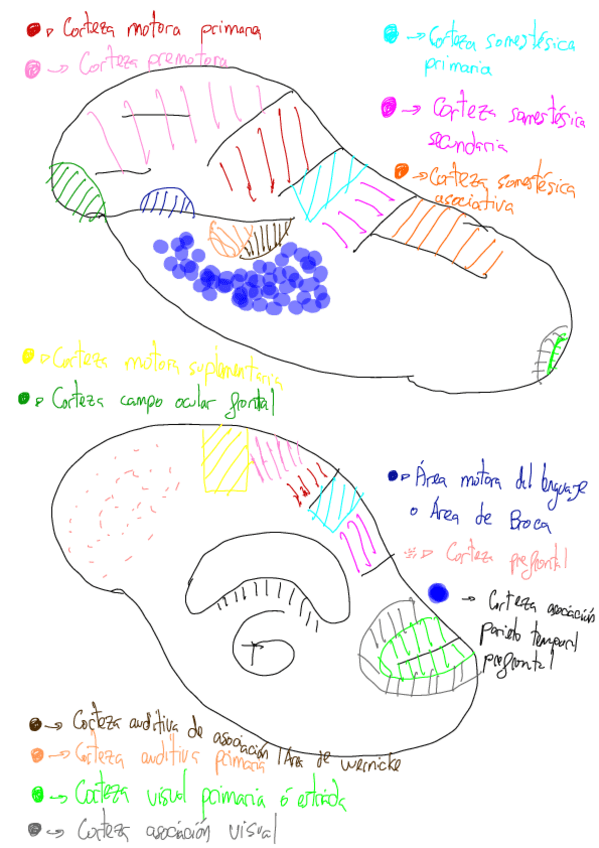 Corteza motora primaria
Corteza premotora
Corteza somestésica
primaria
Corteza somestésica
secundaria
Corteza somestésica
asociativa
Corteza motora suplmentaria
Corteza campo ocular frontal
Área motora del lenguaje
o Área de Broca
Corteza prefrontal
Corteza asociación
parieto temporal
prefrontal
Corteza auditiva de
asociación / Área de wernicke
Corteza auditiva primaria
Corteza visual primaria ó estriada
Corteza asociación visual